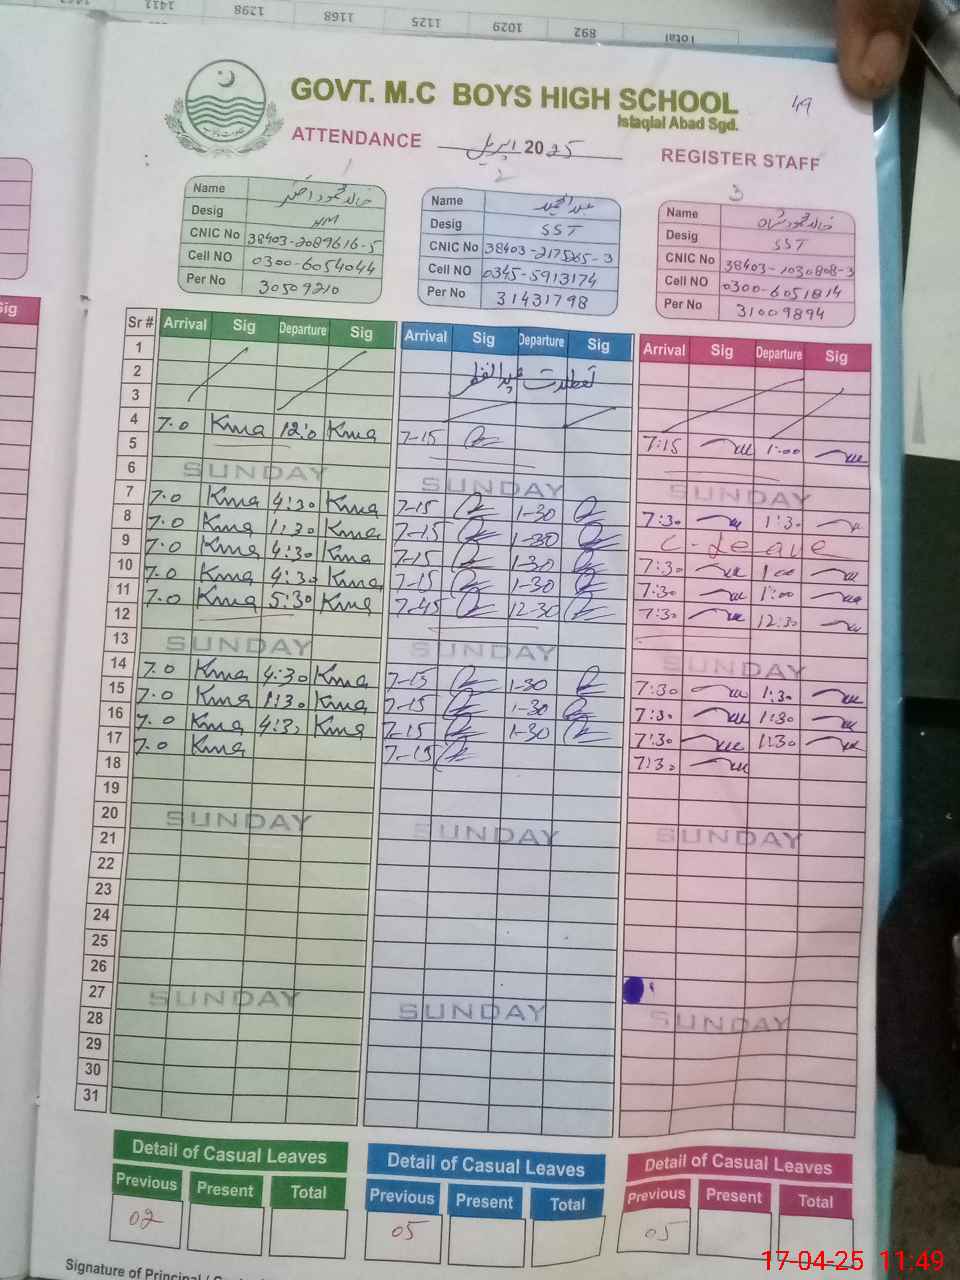 Total 892 1029 1125 1168 1298 1411
GOVT. M.C BOYS HIGH SCHOOL 49
Istaqlal Abad Sgd.
ATTENDANCE اپریل 2025 REGISTER STAFF
1 2 3
Name خالد محمود
Desig HM
CNIC No 38403-2089616-5
Cell NO 0300-6054044
Per No 30509210
Name عبدالمجید
Desig SST
CNIC No
Cell NO 0345-5913174
Per No 31431798
Name خالد محمود
Desig SST
CNIC No 38403-1030808-3
Cell NO 0300-6051814
Per No 31009894
Sr # Arrival Sig Departure Sig Arrival Sig Departure Sig Arrival Sig Departure Sig
1
2 تعطیلات عیدالفطر
3
4 7.0 Kma 12:0 Kma 7-15 7:15 1:00
5
6 SUNDAY SUNDAY SUNDAY
7 7.0 Kma 4:30 Kma 7-15 1-30 7:30 1:30
8 7.0 Kma 1:30 Kma 7-15 1-30 C-Leave
9 7.0 Kma 4:30 Kma 7-15 1-30 7:30 1:00
10 7.0 Kma 4:30 Kma 7-15 1-30 7:30 1:00
11 7.0 Kma 5:30 Kma 7-45 12-30 7:30 12:30
12
13 SUNDAY SUNDAY SUNDAY
14 7.0 Kma 4:30 Kma 7-15 1-30 7:30 1:30
15 7.0 Kma 1:30 Kma 7-15 1-30 7:30 1:30
16 7.0 Kma 4:30 Kma 7-15 1-30 7:30 1:30
17 7.0 Kma 7-15 7:30
18
19
20 SUNDAY SUNDAY SUNDAY
21
22
23
24
25
26
27 SUNDAY SUNDAY SUNDAY
28
29
30
31
Detail of Casual Leaves Detail of Casual Leaves Detail of Casual Leaves
Previous Present Total Previous Present Total Previous Present Total
02 05 05
Signature of Principal /
17-04-25 11:49